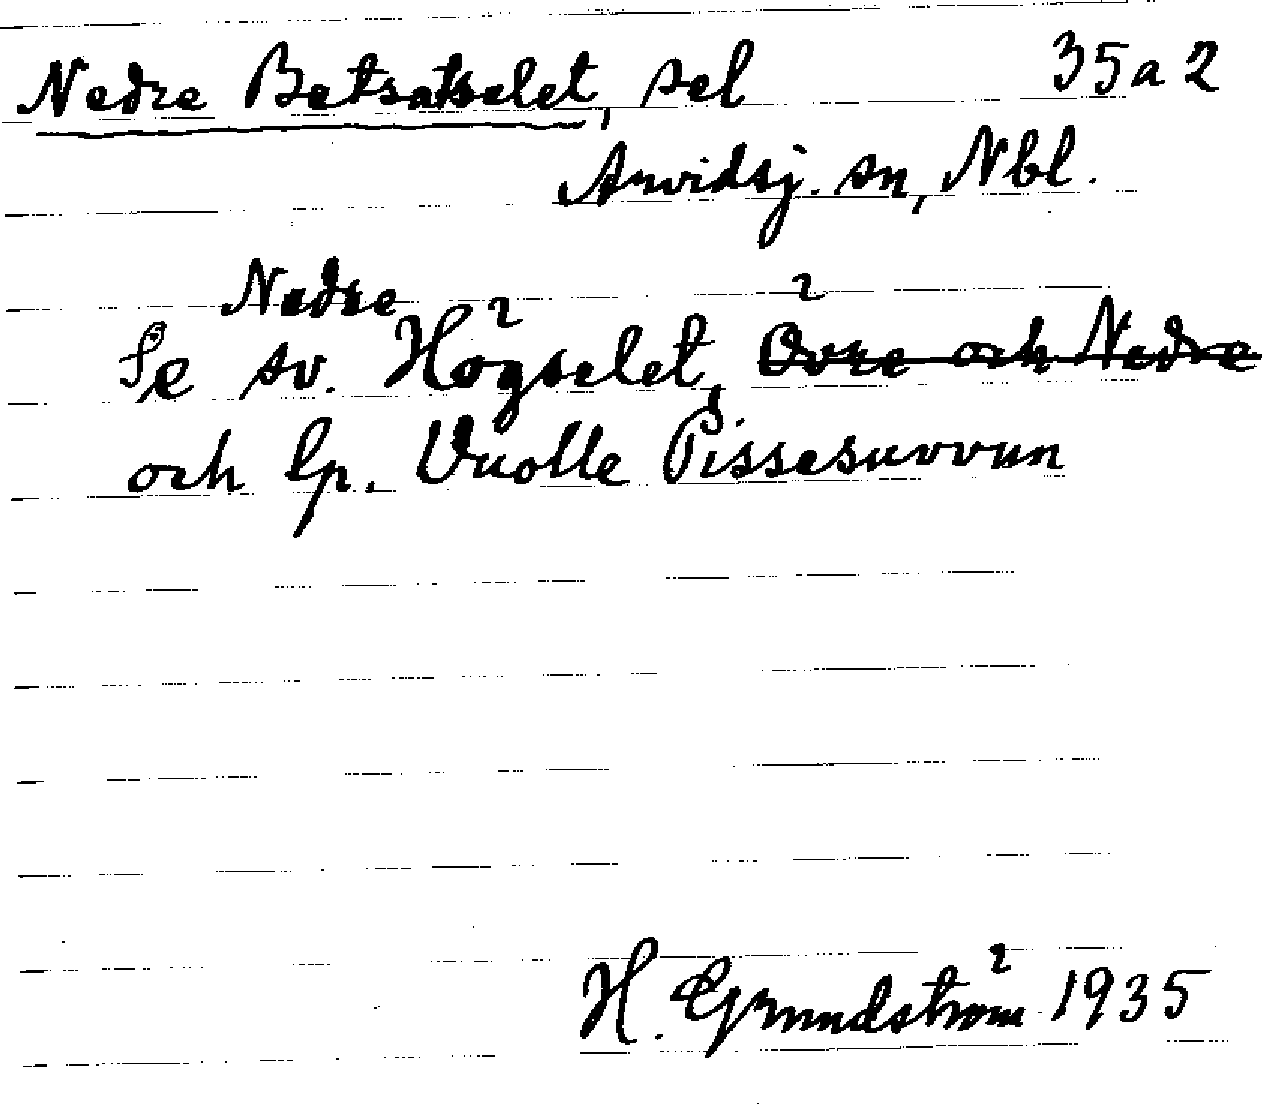 Nedre Betsatselet, sel 35a2
Arvidsj. sn, Nbl.
Nedre
Se sv. Högselet, Övre och Nedre
och lp. Vuolle Pissesuvvun
H. Grundström 1935